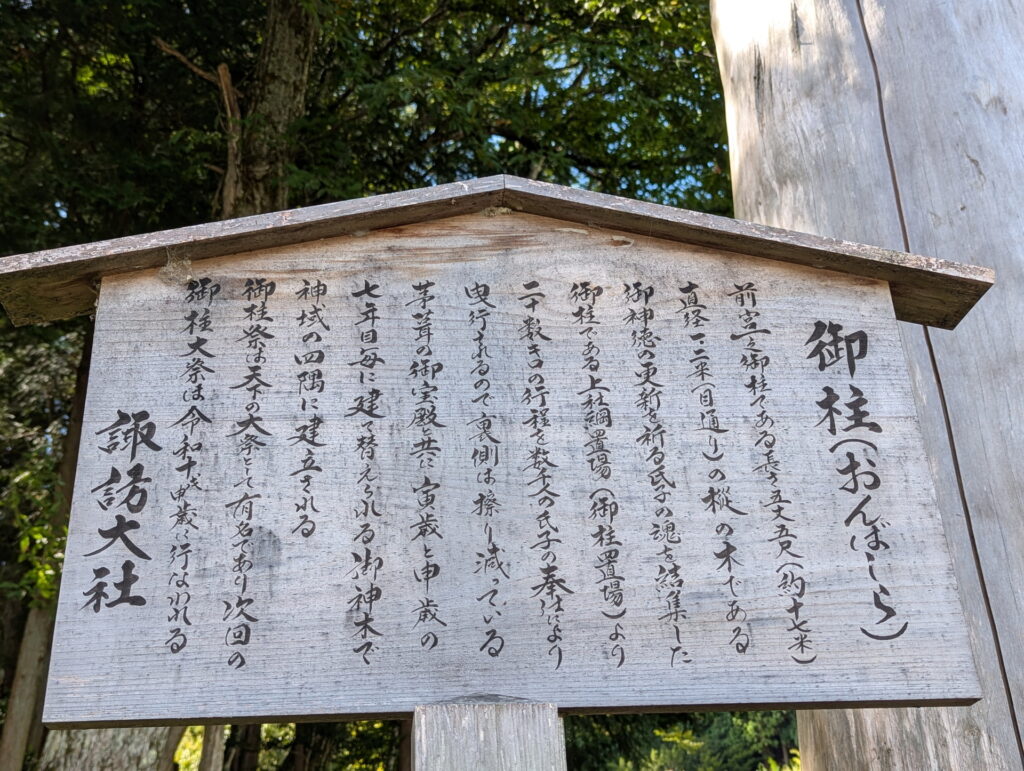 御柱(おんばしら)
前宮之御柱である長さ五丈五尺(約十七米)
直径一・二米(目通り)の樅の木である
御神徳の更新を祈る氏子の魂を結集した
御柱である上社綱置場(御柱置場)より
二十数キロの行程を数千人の氏子の奉仕により
曳行されるので裏側は擦り減っている
茅葺の御宝殿共に寅歳と申歳の
七年目毎に建て替えられる御神木で
神域の四隅に建立される
御柱祭は天下の大祭として有名であり次回の
御柱大祭は令和十年申歳に行なわれる
諏訪大社